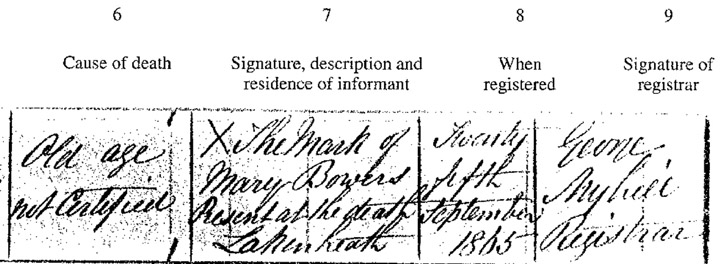 6 7 8 9
Cause of death Signature, description and residence of informant When registered Signature of registrar
Old age
not Certified
X The Mark of
Mary Bowers
Present at the death
Lakenheath
Twenty
fifth
September
1865
George
Registrar